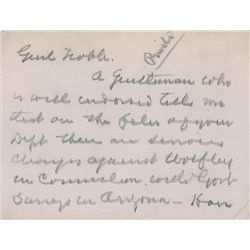 Private
Genl Noble.
A Gentleman who
is well endorsed tells me
that on the files of your
Dept there are serious
charges against Wolfley
in Connection with Govt
Surveys in Arizona — Have